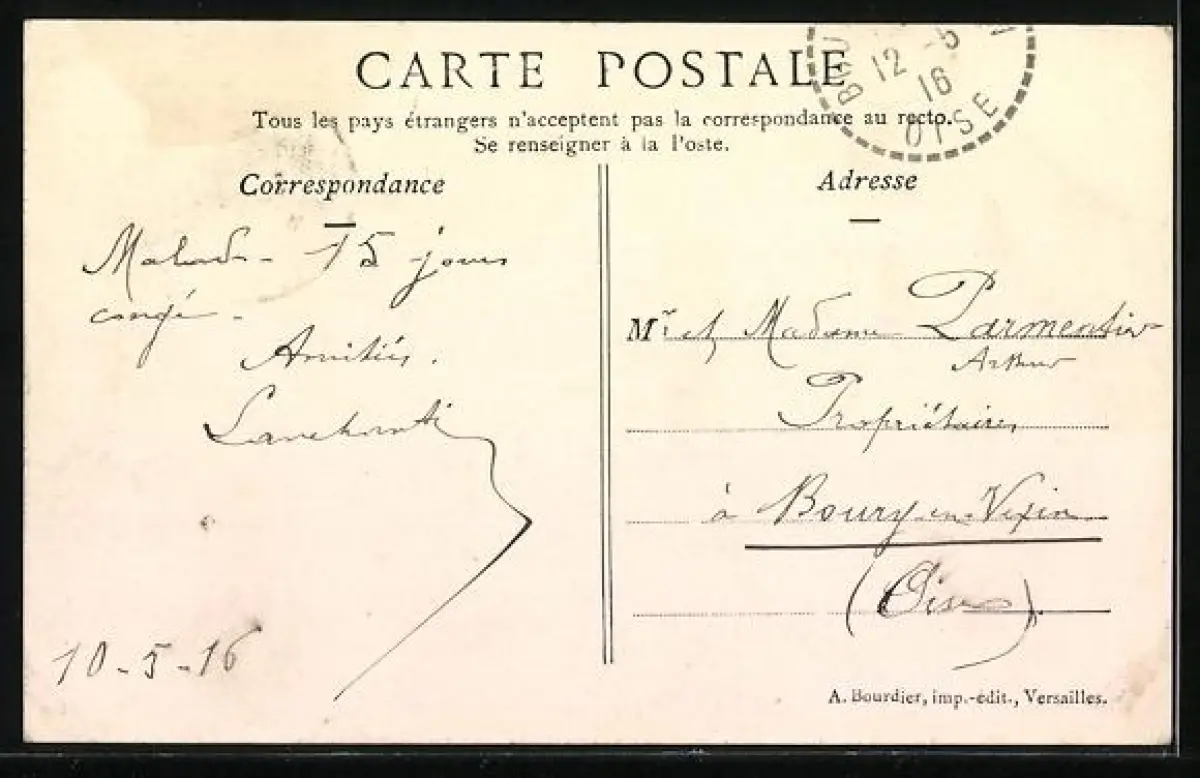 CARTE POSTALE
Tous les pays étrangers n'acceptent pas la correspondance au recto.
Se renseigner à la Poste.
BOU
12 -5
16
OISE
Correspondance
Malade - 15 jours
congé -
Amitiés.
10-5-16
Adresse
Mr et Madame Parmentier
Arthur
Propriétaires
à Boury-en-Vexin
(Oise)
A. Bourdier, imp.-édit., Versailles.